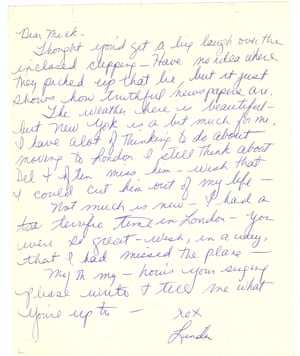 Dear Mick.
Thought you'd get a big laugh over the
inclosed clipping – Have no idea where
they picked up that lie, but it just
shows how truthful newspapers are.
The weather here is beautiful –
but New York is a bit much for me.
I have alot of thinking to do about
moving to London I still think about
Del & often miss him – wish that
I could cut him out of my life –
Not much is new – I had a
terrific time in London – you
were so great – wish, in a way,
that I had missed the plane –
My oh my – how's your singing
please write & tell me what
You're up to –
xox
Linda